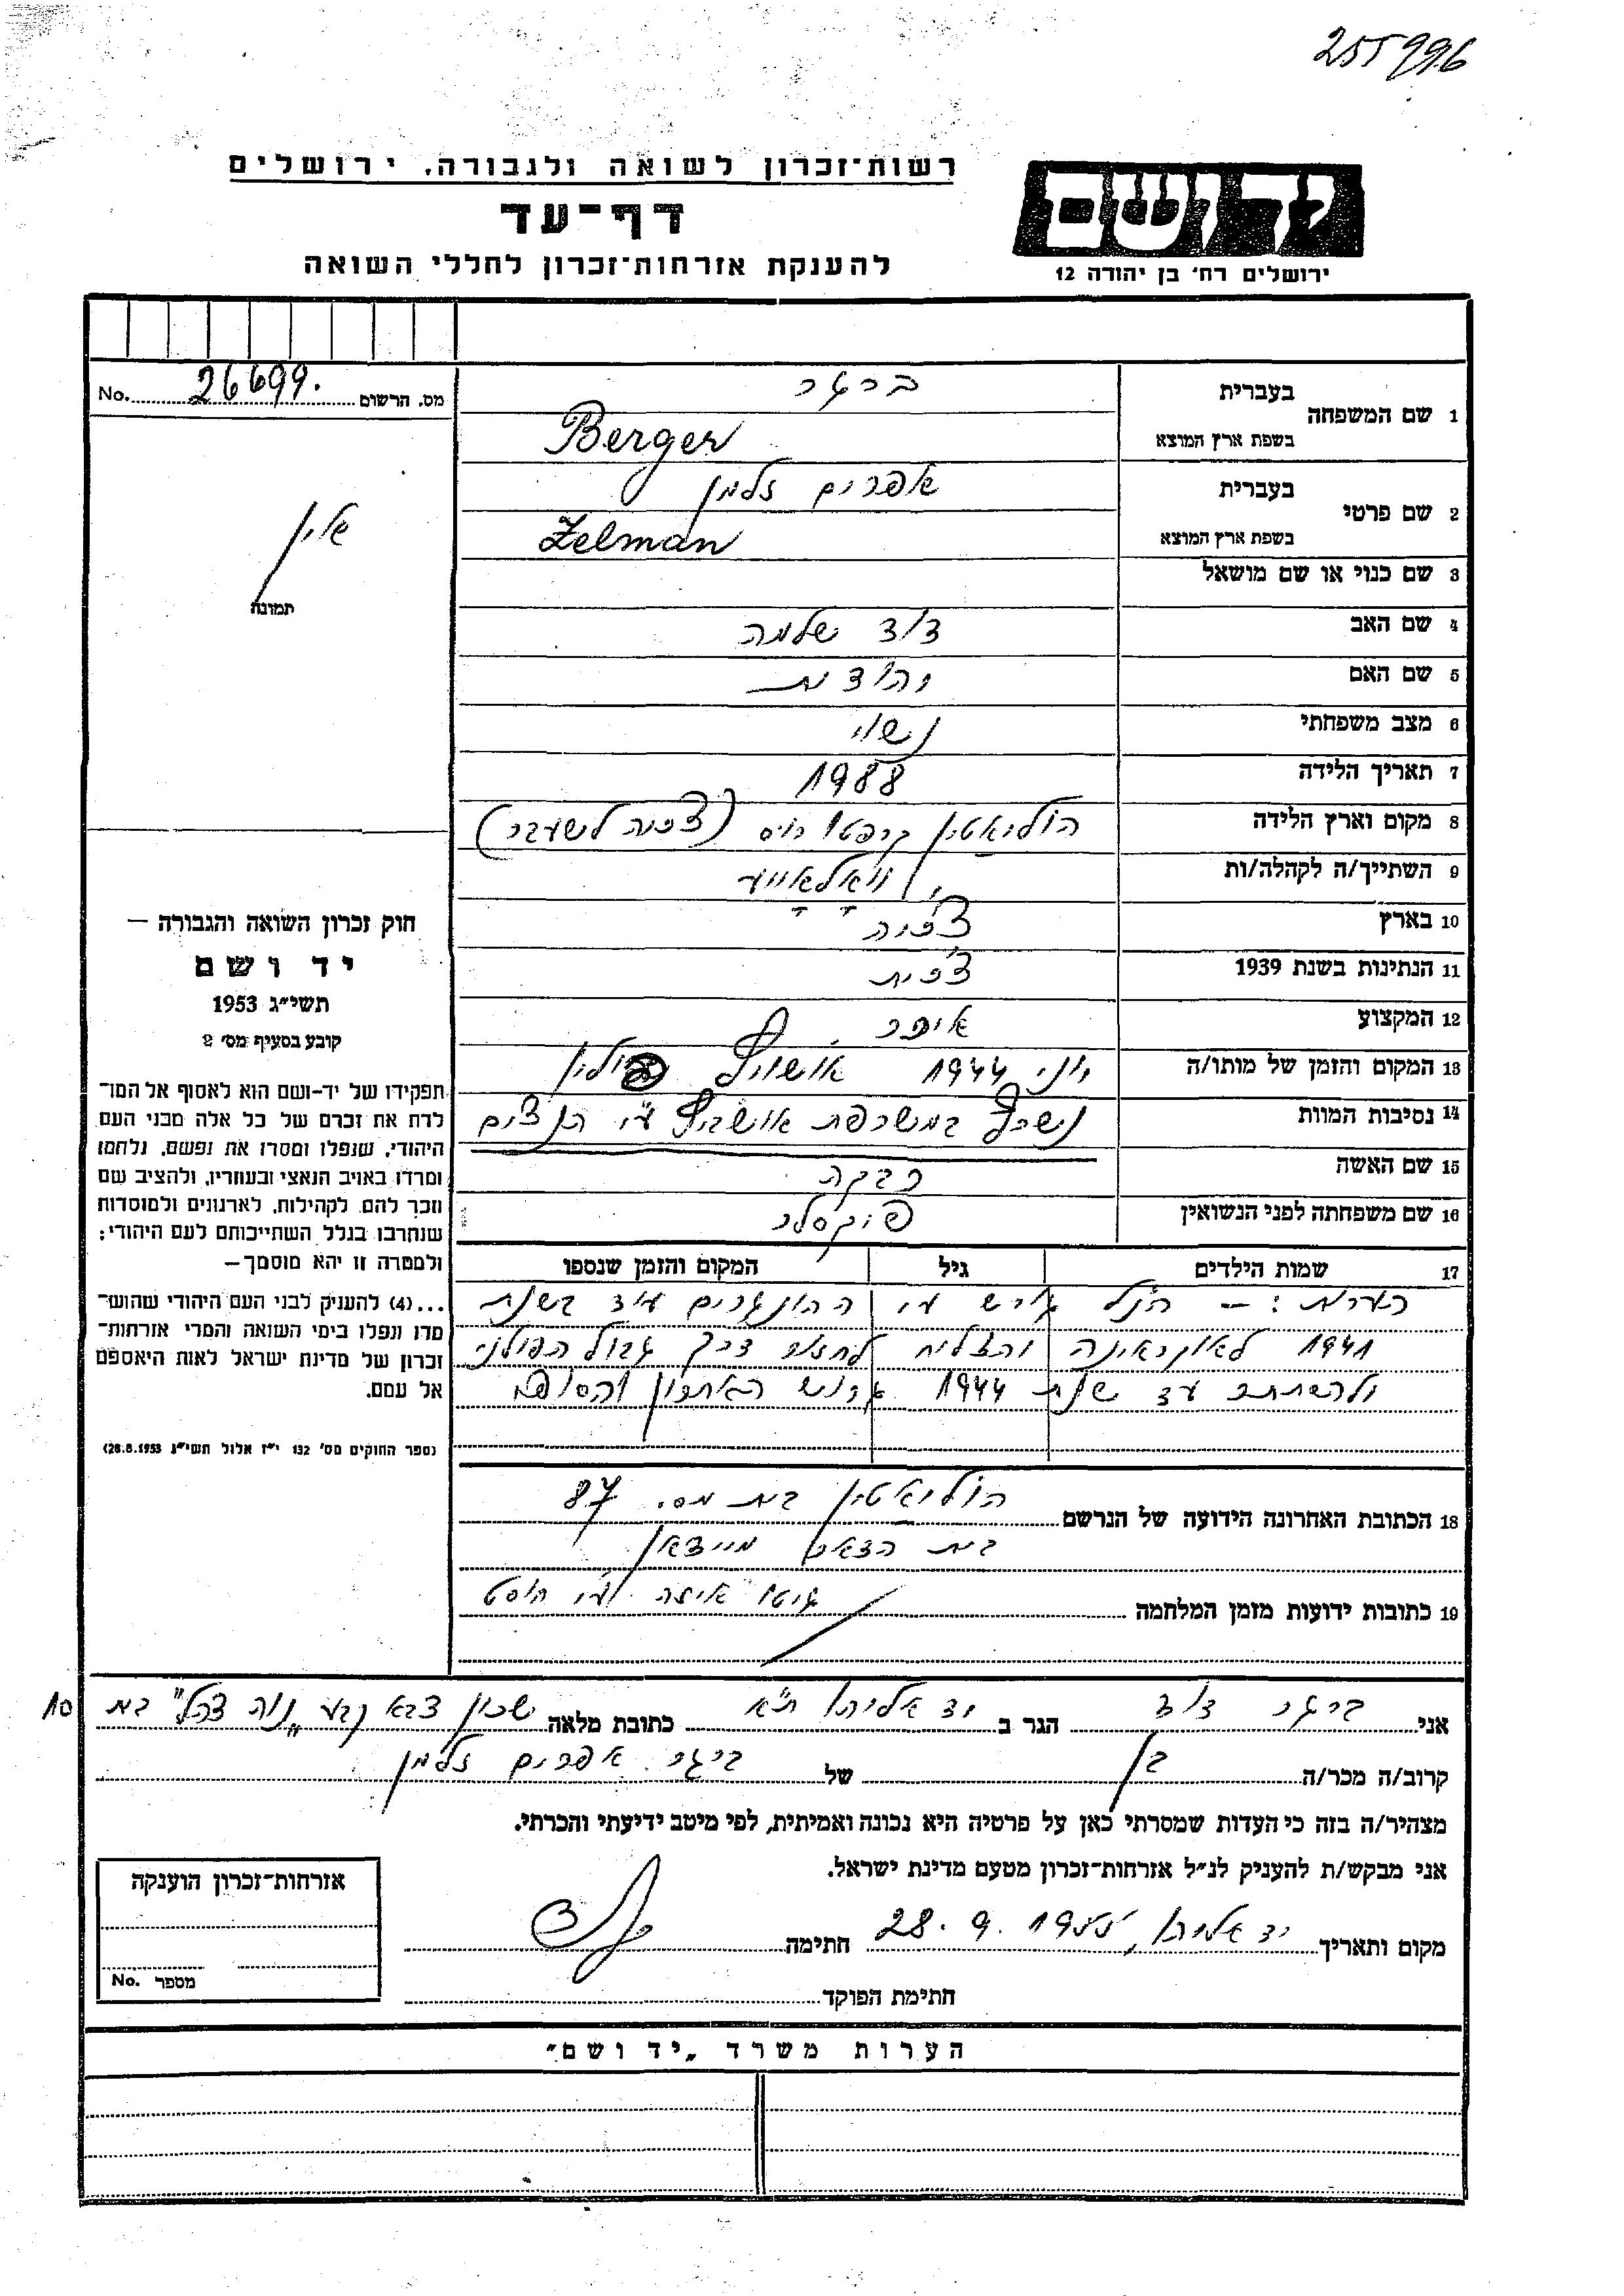 255996
רשות־זכרון לשואה ולגבורה, ירושלים
דף־עד
להענקת אזרחות־זכרון לחללי השואה
ידושם
ירושלים רח' בן יהודה 12
מס. הרשום 26699. No.
1 שם המשפחה
בעברית ברגר
בשפת ארץ המוצא Berger
2 שם פרטי
בעברית אפרים זלמן
בשפת ארץ המוצא Zelman
3 שם כנוי או שם מושאל
4 שם האב דוד שלמה
5 שם האם יהודית
6 מצב משפחתי נשוי
7 תאריך הלידה 1988
8 מקום וארץ הלידה קרפטו רוס (צכיה לשעבר)
9 השתייך/ה לקהלה/ות
10 בארץ צ'כיה
11 הנתינות בשנת 1939 צ'כית
12 המקצוע איכר
13 המקום והזמן של מותו/ה יוני 1944 אושויץ פולין
14 נסיבות המוות נישרף במשרפת אושביץ ע"י הנצים
15 שם האשה רבקה
16 שם משפחתה לפני הנשואין פוקסלר
17 שמות הילדים גיל המקום והזמן שנספו
הערות: — הנ"ל גורש ע"י ההונגרים עוד בשנת
1941 לאוקראינה והצליח לחזור דרך גבול הפולני
ולהסתתר עד שנת 1944 גרוש האחרון
18 הכתובת האחרונה הידועה של הנרשם בית מס. 87
בית
19 כתובות ידועות מזמן המלחמה גיטו איזה ע"י חוסט
תמונה
חוק זכרון השואה והגבורה —
יד ושם
תשי״ג 1953
קובע בסעיף מס' 2
תפקידו של יד-ושם הוא לאסוף אל המו־
לדת את זכרם של כל אלה מבני העם
היהודי, שנפלו ומסרו את נפשם, נלחמו
ומרדו באויב הנאצי ובעוזריו, ולהציב שם
וזכר להם, לקהילות, לארגונים ולמוסדות
שנחרבו בגלל השתייכותם לעם היהודי;
ולמטרה זו יהא מוסמך —
...(4) להעניק לבני העם היהודי שהוש־
מדו ונפלו בימי השואה והמרי אזרחות־
זכרון של מדינת ישראל לאות היאספם
אל עמם.
(ספר החוקים מס' 132 י״ז אלול תשי״ג 28.8.1953)
אני ברגר דוד הגר ב יד אליהו ת"א כתובת מלאה שכון צבא קבע "נוה צהל" בית 10
קרוב/ה מכר/ה בן של ברגר אפרים זלמן
מצהיר/ה בזה כי העדות שמסרתי כאן על פרטיה היא נכונה ואמיתית, לפי מיטב ידיעתי והכרתי.
אני מבקש/ת להעניק לנ״ל אזרחות־זכרון מטעם מדינת ישראל.
מקום ותאריך יד אליהו, 28.9.1955 חתימה
חתימת הפוקד
אזרחות־זכרון הוענקה
מספר No.
הערות משרד „יד ושם״